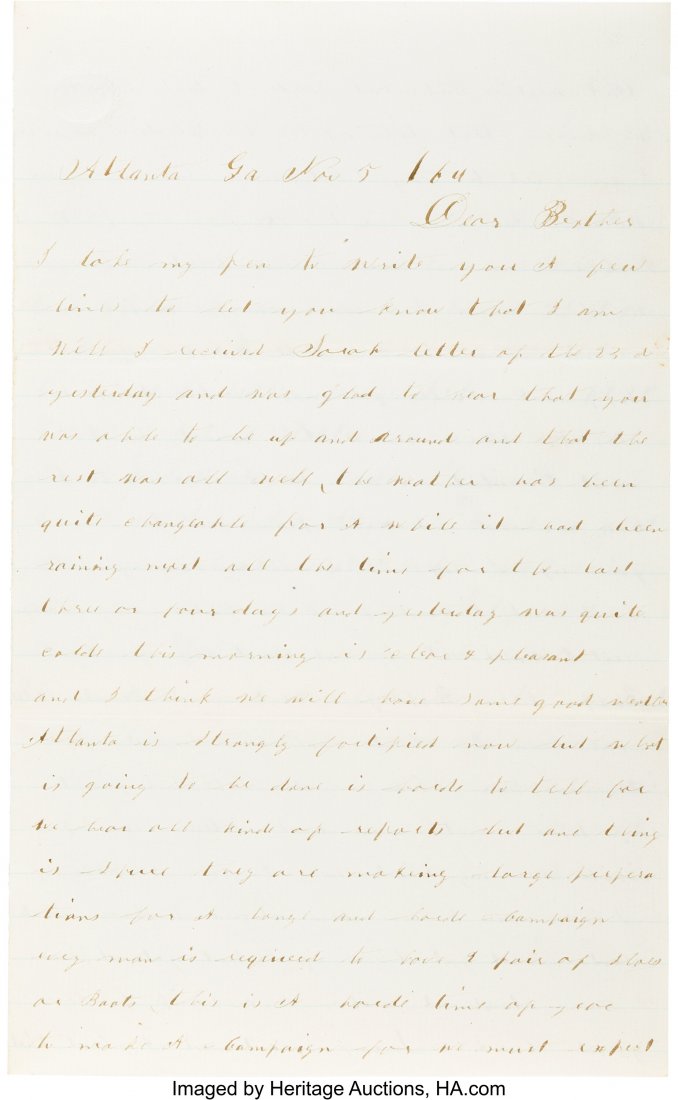 Atlanta Ga Nov 5 / 64
Dear Brother
I take my pen to write you A few
lines to let you know that I am
well I received Sarah letter of the 23 d
yesterday and was glad to hear that you
was able to be up and around and that the
rest was all well, the weather has been
quite changeable for A while it had been
raining most all the time for the last
three or four days and yesterday was quite
colde this morning is clear & pleasant
and I think we will have some good weather
Atlanta is strongly fortified now but what
is going to be done is harde to tell for
we hear all kinds of reports but one thing
is they are making large prepera
tions for A longe and harde Campaign
evry man is required to have 2 pair of shoes
or Boots this is A harde time of year
to make A Campaign for we must expect
Imaged by Heritage Auctions, HA.com